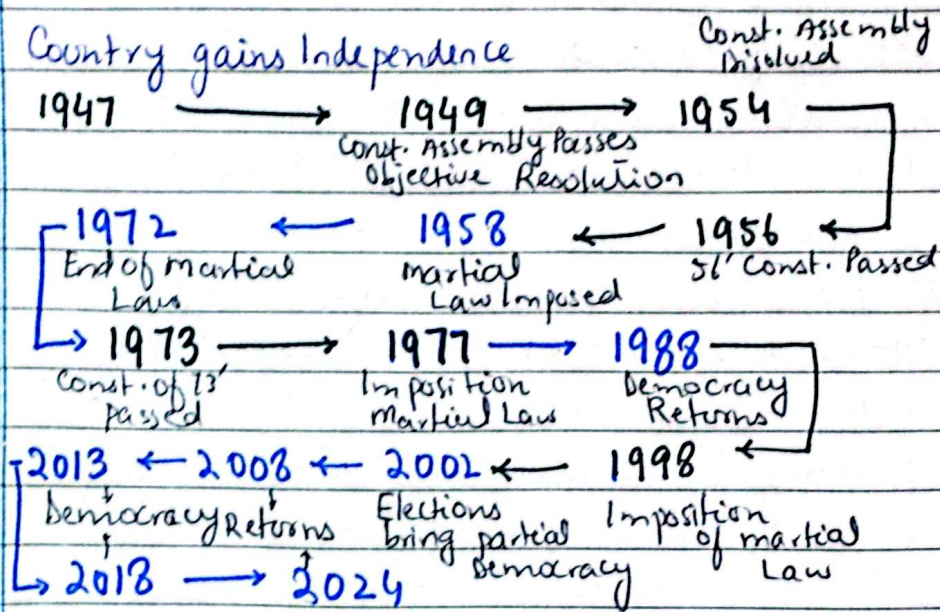 Country gains Independence
Const. Assembly
Disolved
1947 → 1949 → 1954
Const. Assembly Passes
Objective Resolution
1972 ← 1958 ← 1956
End of martial
Law
martial
Law Imposed
56' Const. Passed
1973 → 1977 → 1988
Const. of 73'
passed
Imposition
Martial Law
Democracy
Returns
2013 ← 2008 ← 2002 ← 1998
Democracy Returns
Elections
bring partial
Democracy
Imposition
of martial
Law
2018 → 2024